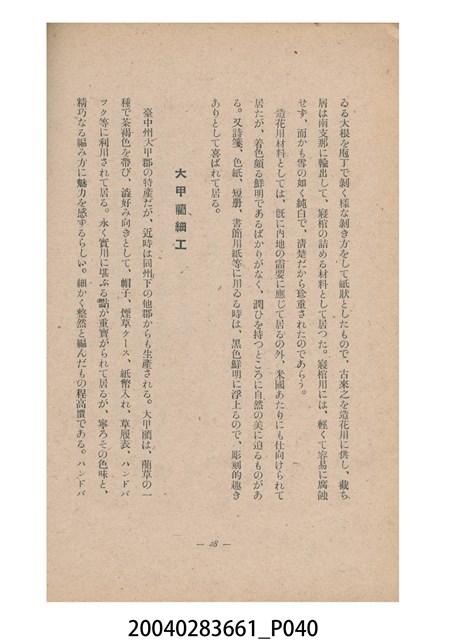 ゐる大根を庖丁で剝く樣な剝き方をして紙狀としたもので、古來之を造花用に供し、截ち
屑は南支那に輸出して、寢棺の詰める材料として居つた。寢棺用には、輕くて容易に腐蝕
せず、而かも雪の如く純白で、淸楚だから珍重されたのであらう。
造花用材料としては、旣に內地の需要に應じて居るの外、米國あたりにも仕向けられて
居たが、着色頗る鮮明であるばかりがなく、潤ひを持つところに自然の美に迫るものがあ
る。又詩箋、色紙、短册、書簡用紙等に用ゐる時は、黑色鮮明に浮上るので、彫刻的趣き
ありとして喜ばれて居る。
大甲藺細工
臺中州大甲郡の特產だが、近時は同州下の他郡からも生產される。大甲藺は、藺草の一
種で茶褐色を帶び、澁好み向きとして、帽子、煙草ケース、紙幣入れ、草履表、ハンドバ
ツク等に利用されて居る。永く實用に堪ふる點が重寶がられて居るが、寧ろその色味と、
精巧なる編み方に魅力を感ずるらしい。細かく整然と編んだもの程高價である。ハンドバ
— 28 —
20040283661_P040